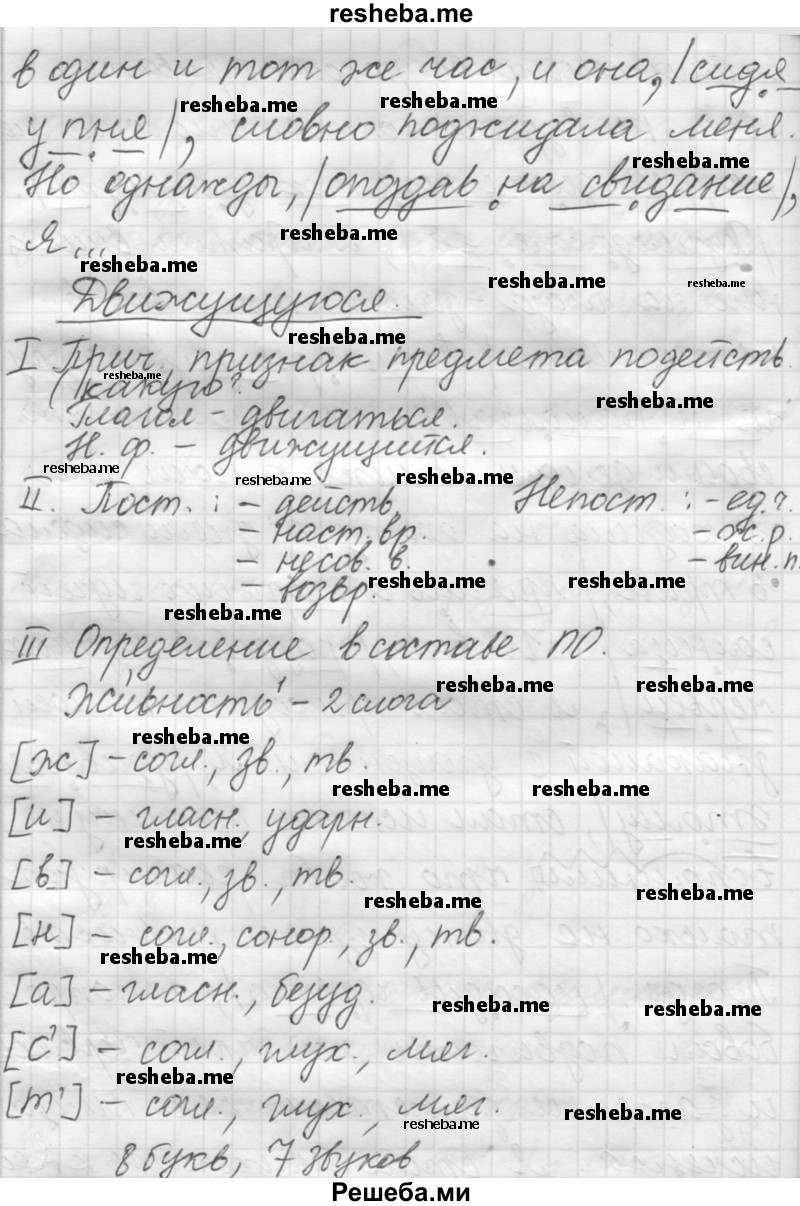 resheba.me
в один и тот же час, и она, /сидя
resheba.me resheba.me
у пня/, словно поджидала меня.
resheba.me
Но однажды, /опоздав на свидание/,
resheba.me
я...
resheba.me
resheba.me resheba.me
Движущуюся.
resheba.me
I Прич., признак предмета по действ.
resheba.me
/какую?
resheba.me
Глагол – двигаться.
Н. ф. – движущийся.
resheba.me resheba.me resheba.me
II. Пост.: – действ. Непост.: – ед.ч.
– наст. вр. – ж.р.
– несов. в. – вин. п.
– возвр.
resheba.me resheba.me
resheba.me
III Определение в составе ПО.
resheba.me resheba.me
Живность¹ – 2 слога
resheba.me
[ж] – согл., зв., тв.
resheba.me resheba.me
[и] – гласн., ударн.
resheba.me
[в] – согл., зв., тв.
resheba.me resheba.me
[н] – согл., сонор., зв., тв.
resheba.me
[а] – гласн., безуд.
resheba.me resheba.me
[с'] – согл., глух., мяг.
resheba.me
[т'] – согл., глух., мяг.
resheba.me resheba.me
8 букв, 7 звуков
Решеба.ми